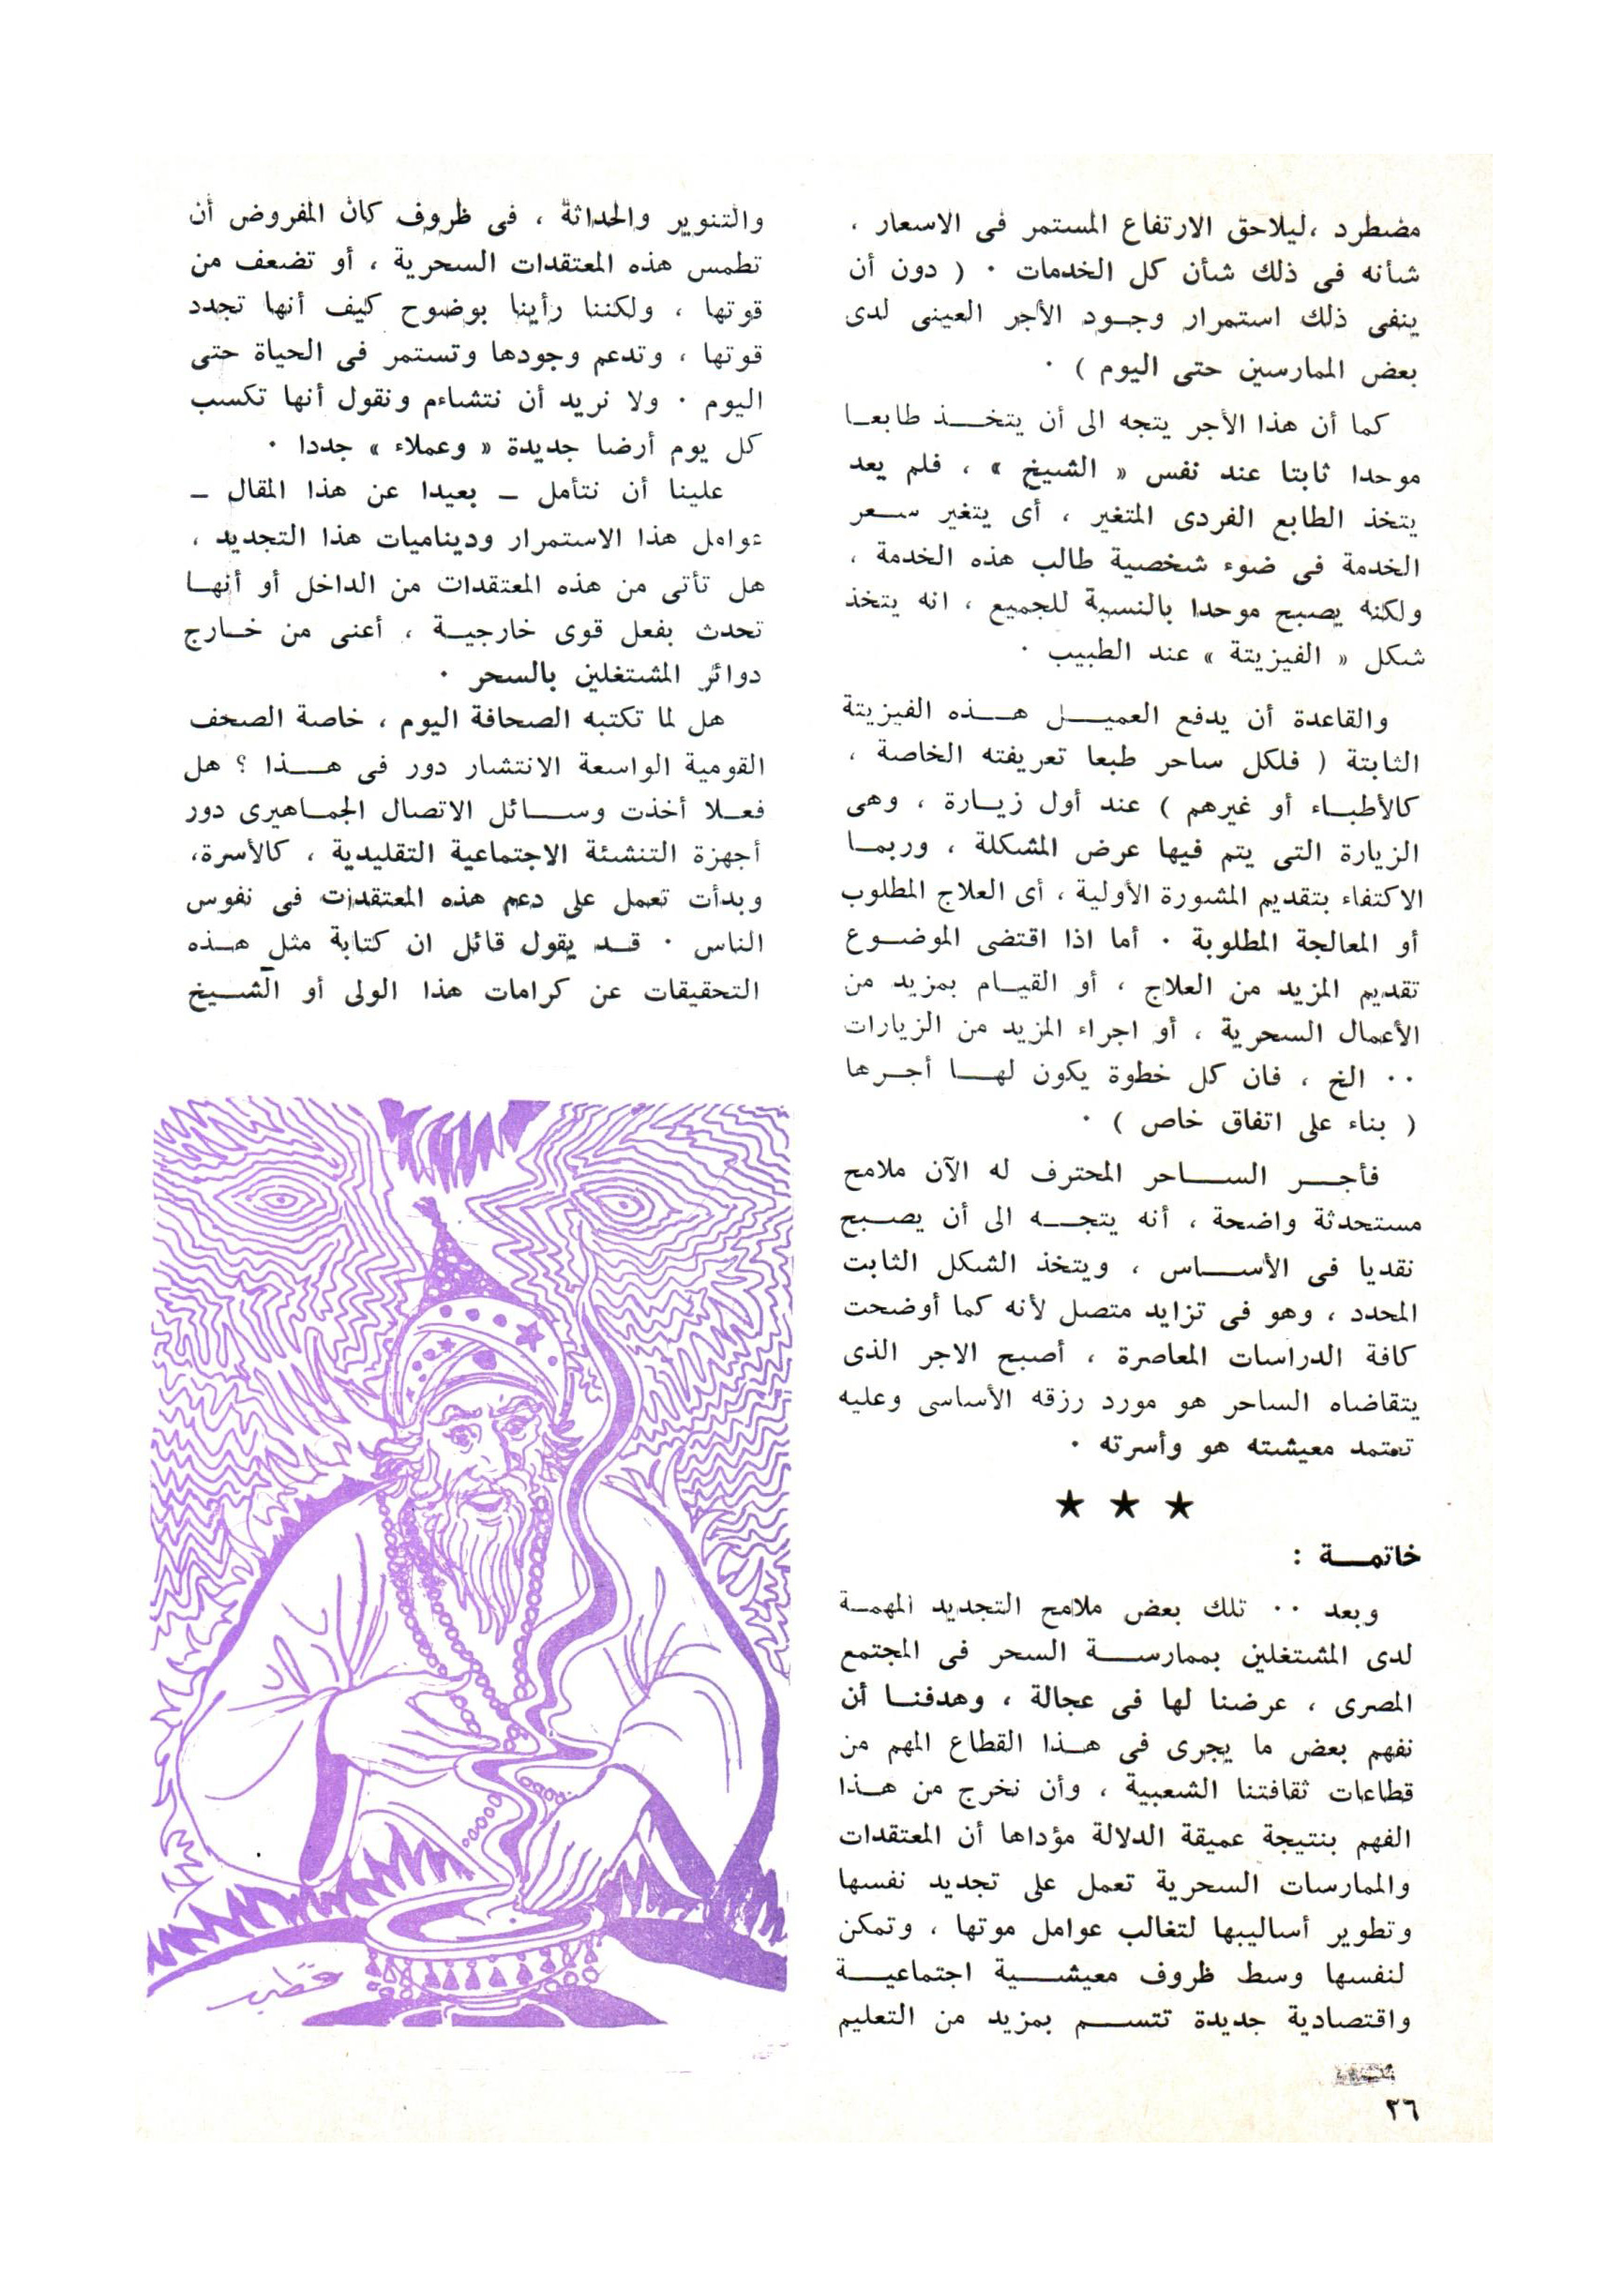 مضطرد ،ليلاحق الارتفاع المستمر فى الاسعار ،
شأنه فى ذلك شأن كل الخدمات ٠ ( دون أن
ينفى ذلك استمرار وجـود الأجر العينى لدى
بعض الممارسين حتى اليوم ) ٠
كما أن هذا الأجر يتجه الى أن يتخـــذ طابعـا
موحدا ثابتا عند نفس « الشيخ » ، فلم يعد
يتخذ الطابع الفردى المتغير ، أى يتغير سـعر
الخدمة فى ضوء شخصية طالب هذه الخدمة ،
ولكنه يصبح موحدا بالنسبة للجميع ، انه يتخذ
شكل « الفيزيتة » عند الطبيب ٠
والقاعدة أن يدفع العميـــل هـــذه الفيزيتة
الثابتة ( فلكل ساحر طبعا تعريفته الخاصة ،
كالأطبـاء أو غيرهم ) عند أول زيـارة ، وهى
الزيارة التى يتم فيها عرض المشكلة ، وربمـا
الاكتفاء بتقديم المشورة الأولية ، أى العلاج المطلوب
أو المعالجة المطلوبة ٠ أما اذا اقتضى الموضـوع
تقديم المزيد من العلاج ، أو القيـام بمزيد من
الأعمال السحرية ، أو اجراء المزيد من الزيارات
٠٠ الخ ، فان كل خطوة يكون لهـــا أجـرها
( بناء على اتفاق خاص ) ٠
فأجـــر الســـاحر المحترف له الآن ملامح
مستحدثة واضحة ، أنه يتجـــه الى أن يصـبح
نقديا فى الأســـاس ، ويتخذ الشكل الثابت
المحدد ، وهو فى تزايد متصل لأنه كما أوضحت
كافة الدراسات المعاصرة ، أصبح الاجر الذى
يتقاضاه الساحر هو مورد رزقه الأساسى وعليه
تعتمد معيشته هو وأسرته ٠
★ ★ ★
خاتمـــة :
وبعد ٠٠ تلك بعض ملامح التجديد المهمـة
لدى المشتغلين بممارســـة السحر فى المجتمع
المصرى ، عرضنا لها فى عجالة ، وهدفنـا أن
نفهم بعض ما يجرى فى هـذا القطاع المهم من
قطاعات ثقافتنا الشعبية ، وأن نخرج من هـذا
الفهم بنتيجة عميقة الدلالة مؤداها أن المعتقدات
والممارسات السحرية تعمل على تجديد نفسها
وتطوير أساليبها لتغالب عوامل موتها ، وتمكن
لنفسها وسط ظروف معيشـــية اجتماعيـــة
واقتصادية جديدة تتســـم بمزيد من التعليم
والتنوير والحداثة ، فى ظروف كان المفروض أن
تطمس هذه المعتقدات السحرية ، أو تضعف من
قوتها ، ولكننا رأينا بوضوح كيف أنها تجدد
قوتها ، وتدعم وجودها وتستمر فى الحياة حتى
اليوم ٠ ولا نريد أن نتشاءم ونقول أنها تكسب
كل يوم أرضا جديدة « وعملاء » جددا ٠
علينا أن نتأمل ــ بعيدا عن هذا المقال ــ
عوامل هذا الاستمرار وديناميات هذا التجديد ،
هل تأتى من هذه المعتقدات من الداخل أو أنهـا
تحدث بفعل قوى خارجيـة ، أعنى من خـارج
دوائر المشتغلين بالسحر ٠
هل لما تكتبه الصحافة اليوم ، خاصة الصحف
القومية الواسعة الانتشار دور فى هـــذا ؟ هل
فعـلا أخذت وســـائل الاتصال الجمـاهيرى دور
أجهزة التنشئة الاجتماعية التقليدية ، كالأسرة،
وبدأت تعمل على دعم هذه المعتقدات فى نفوس
الناس ٠ قـد يقول قائل ان كتابة مثل هـذه
التحقيقات عن كرامات هذا الولى أو الشـيخ
٢٦